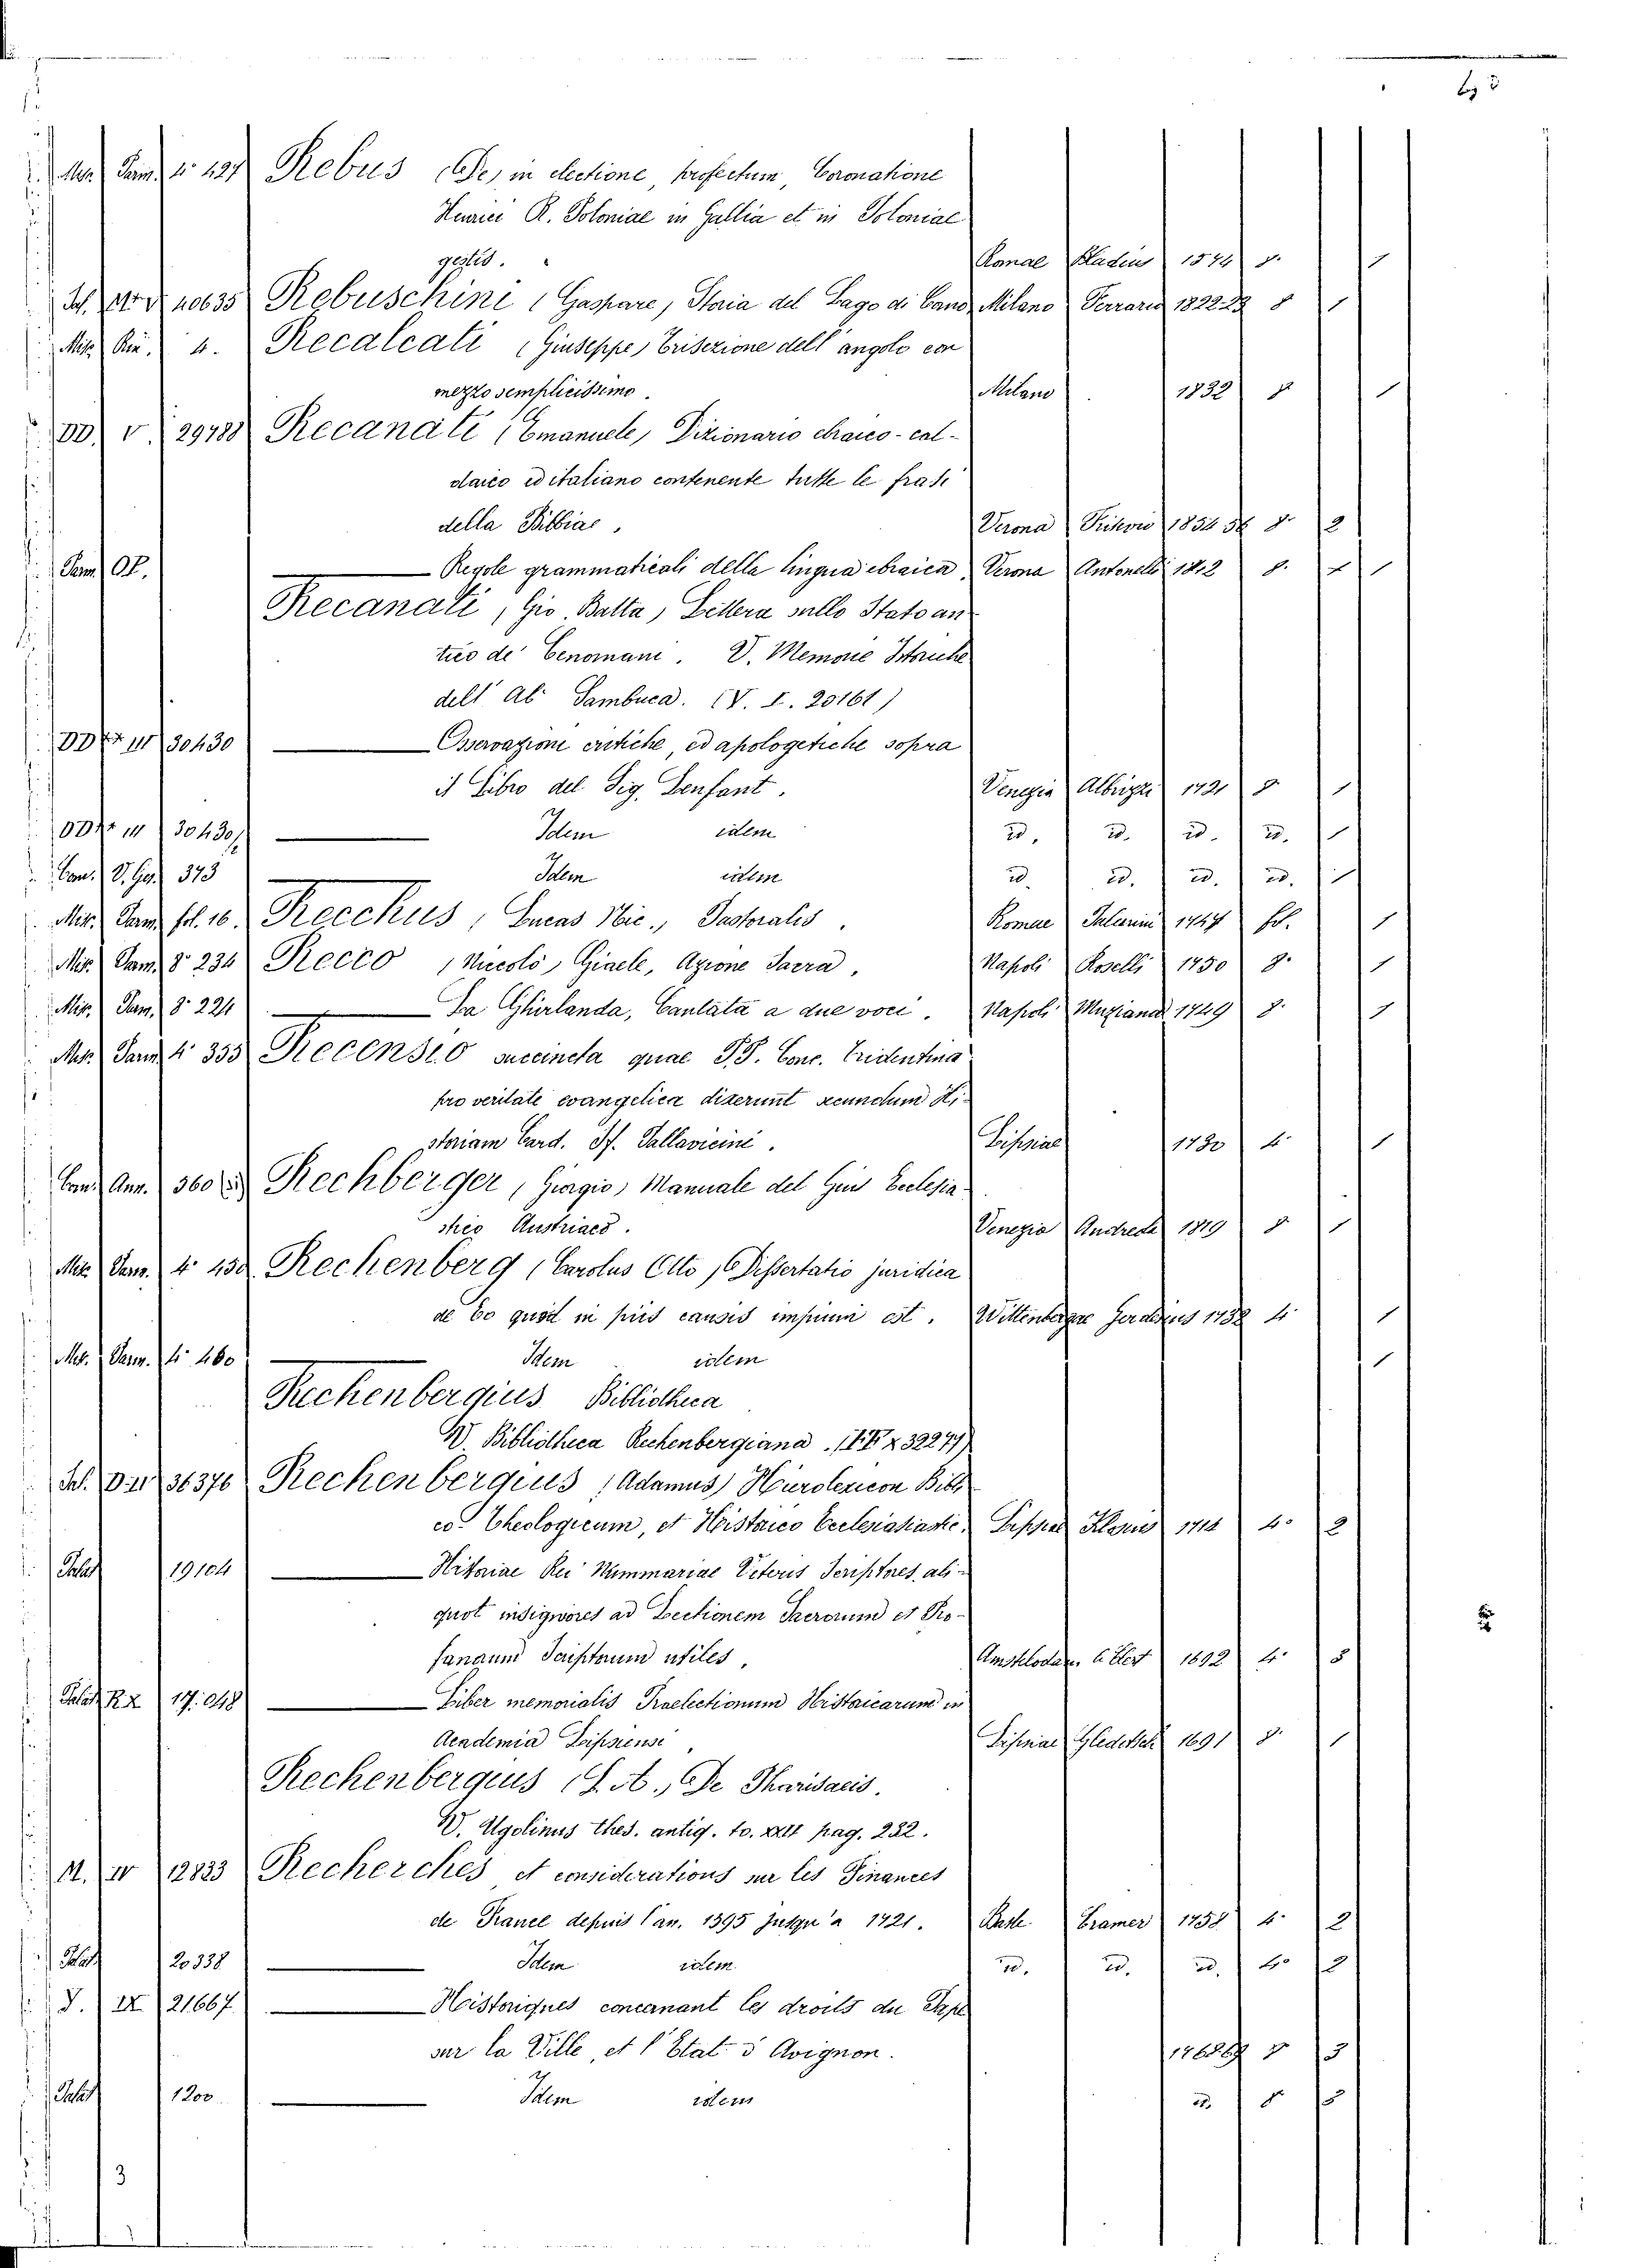 Mis. Parm. 4º 427 Rebus (De) in electione, profectum, Coronatione
Henrici R. Poloniae in Gallia et in Poloniae
gestis. Romae Bladius 1574 8. 1
40635 Rebuschini (Gaspare) Storia del Lago di Como Milano Ferrario 1822 23 8 1
Mis. Rin. 4. Recalcati (Giuseppe) Trisezione dell' angolo con
mezzo semplicissimo. Milano 1832 8 1
DD. V 29788 Recanati (Emanuele) Dizionario ebraico-cal-
daico ed italiano contenente tutte le frasi
della Bibbiae, Verona 1854 56 8. 2
Parm. OP. Regole grammaticali della lingua ebraica Verona Antonelli 1842 8. 1
Recanati (Gio. Batta) Lettera sullo Stato an-
tico de' Cenomani. V. Memorie Istoriche
dell' Ab. Sambuca. (V. I. 20161)
DD XX III 30430 Osservazione critiche, ed apologetiche sopra
il Libro del Sig. Lenfant. Venezia Albrizzi 1721 8 1
DD XX III 30430 Idem idem id. id. id. id. 1
Com. V. Ges. 373 Idem idem id. id. id. id. 1
Mis. Parm. fol. 16. Recchus (Lucas Nic.) Pastoralis. Romae Salarini 1747 fol. 1
Mis. Parm. 8º 234 Recco (Niccolò) Giaele, Azione Sacra, Napoli Roselli 1750 8. 1
Mis. Parm. 8º 221 La Ghirlanda, Cantata a due voci. Napoli Muziana 1749 8. 1
Mis. Parm. 4º 355 Recensio succincta quae PP. Conc. Tridentina
pro veritate evangelica dixerunt secundum Hi-
storiam Card. Sf. Pallavicini. Lipsiae 1730 4º 1
Com. Ann. 360 Rechberger (Giorgio) Manuale del Gius Ecclesia-
stico Austriaco. Venezia Andreola 1819 8 1
Mis. Parm. 4º 450 Rechenberg (Carolus Otto) Dissertatio juridica
de Eo quod in piis causis impium est. Wittenbergae Gerdesius 1732 4º 1
Mis. Parm. 4º 460 Idem idem 1
Rechenbergius Bibliotheca
V. Bibliotheca Rechenbergiana. 32277)
36376 Rechenbergius (Adamus) Hierolexicon Bibli
co. Theologicum, et Historico Ecclesiastic. Lipsiae Klosius 1714 4º 2
Palat 19104 Historiae Rei Nummariae Veteris Scriptores ali-
quot insigniores ad Lectionem Sacrorum et Pro-
fanarum Scriptorum utiles, Amstelodam. 1692 4º 5
Palat R X 17.048 Liber memorialis Praelectionum Historicarum in
Academia Lipsiensi Lipsiae Gleditsch 1691 8. 1
Rechenbergius (S. A.) De Pharisaeis.
V. Ugolinus thes. antiq. to. XXII pag. 222.
M. IV 12823 Recherches et considerations sur les Finances
de France depuis l'an. 1595 jusqu'a 1721. Basle Cramer 1758 4. 2
Palat 20338 Idem idem id. id. id. 4º 2
J. IX 21667 Historiques concernant les droits du Pape
sur la Ville, et l'Etat d'Avignon. 1768 69 8 3
Palat 1200 Idem idem id. 8
3